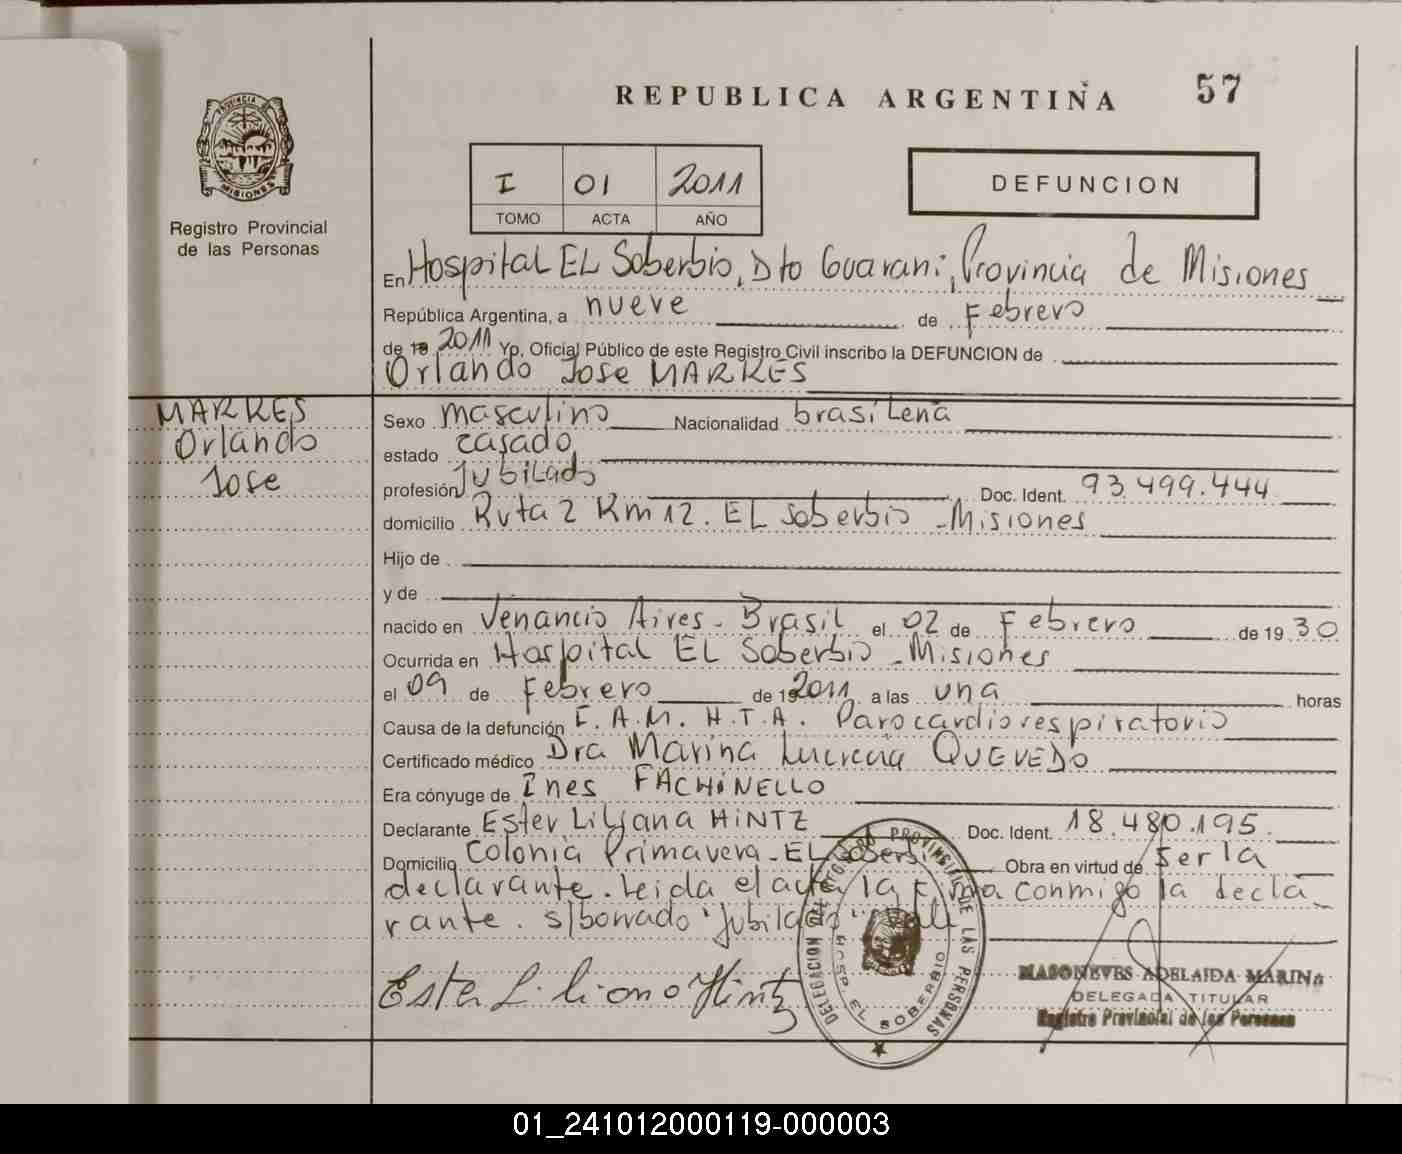 REPUBLICA ARGENTINA
57
PROVINCIA DE
MISIONES
Registro Provincial
de las Personas
I 01 2011
TOMO ACTA AÑO
DEFUNCION
En Hospital EL Soberbio, Dto Guarani, Provincia de Misiones
República Argentina, a nueve de Febrero
de 19 2011 Yo, Oficial Público de este Registro Civil inscribo la DEFUNCION de
Orlando Jose MARKES
MARKES
Orlando
Jose
Sexo masculino Nacionalidad brasileña
estado casado
profesión Jubilado Doc. Ident. 93.499.444
domicilio Ruta 2 Km 12. EL Soberbio - Misiones
Hijo de
y de
nacido en Venancio Aires - Brasil el 02 de Febrero de 1930
Ocurrida en Hospital EL Soberbio - Misiones
el 09 de Febrero de 19 2011 a las una horas
Causa de la defunción I.A.M. H.T.A. Parocardiorespiratorio
Certificado médico Dra Marina Lucrecia QUEVEDO
Era cónyuge de Ines FACHINELLO
Declarante Ester Liliana HINTZ Doc. Ident. 18.480.195
Domicilio Colonia Primavera - EL Soberbio Obra en virtud de ser la
declarante. Leida el acta la firma conmigo la decla
rante. s/borrado "Jubilado" vale
Ester Liliana Hintz
DELEGACION DEL REGISTRO PROVINCIAL DE LAS PERSONAS
HOSP. EL SOBERBIO
MASONEVES ADELAIDA MARINA
DELEGADA TITULAR
Registro Provincial de las Personas
01_241012000119-000003